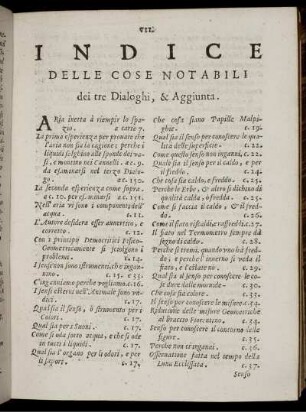 VII.
INDICE
DELLE COSE NOTABILI
dei tre Dialoghi, & Aggiunta.
ARia inetta à riempir lo spa-
zio. a carte 7.
La prima esperienza per provare che
l'aria non sia la cagione, perche i
liquidi
c. 9. da
esaminarsi nel terzo Dialo-
go. ac. 130.
La seconda esperienza come sopra.
ac. 10. ed esaminarsi. ac. 132.
Nell'aria sono i componimenti dell'
acqua. c. 11.
L'Autore desidera esser avvertito, e
corretto. c. 2.
Con i principj Democritici Fisico-
Geometricamente si sciolgono i
problema. c. 14.
I sensi non sono istrumenti che ingan-
nino. c. 15.
C'inganniamo perche vogliamo. c. 16.
I sensi esterni nell'Animale sono
c. 17.
Qual sia il senso, ò stromento per i
Colori. c. 17.
Qual sia per i Suoni. c. 17.
Come si oda sotto acqua, e che si ode
in tutti i liquidi. c. 17.
Qual sia l'organo per li odori, e per
i sapori. c. 17.
Che cose siano Papille Malpi-
ghie. c. 19.
Qual sia il senso per conoscere le qua-
lità delle superficie. c. 22.
Come questo senso non inganni. c. 22.
Quale sia il senso per il caldo, e per
il freddo. c. 23.
Che cosa sia caldo, e freddo. c. 25.
Perche le Erbe, & altro si dichino di
qualità calda, ò fredda. c. 26.
Come si faccia il caldo, & il fred-
do. c. 26.
Come il fiato riscaldi, e raffreddi. c. 27.
Il fiato nel Termometro sempre dà
segno di caldo. c. 27.
Perche si tremi, quando uno hà fred-
do, e perche l'inverno si veda il
fiato, e l'estate no. c. 29.
Qual sia il senso per conoscere le co-
se dure dalle morvide. c. 31.
Che cosa sia calore. c. 31.
Il senso per conoscere le misure. c. 34.
Riduzione delle misure Geometriche
al braccio Fiorentino. c. 35.
Senso per conoscere il contorno delle
figure. c. 36.
Perche non c'inganni. c. 36.
Osservatione fatta nel tempo della
Luna Ecclissata. c. 37.
Senso